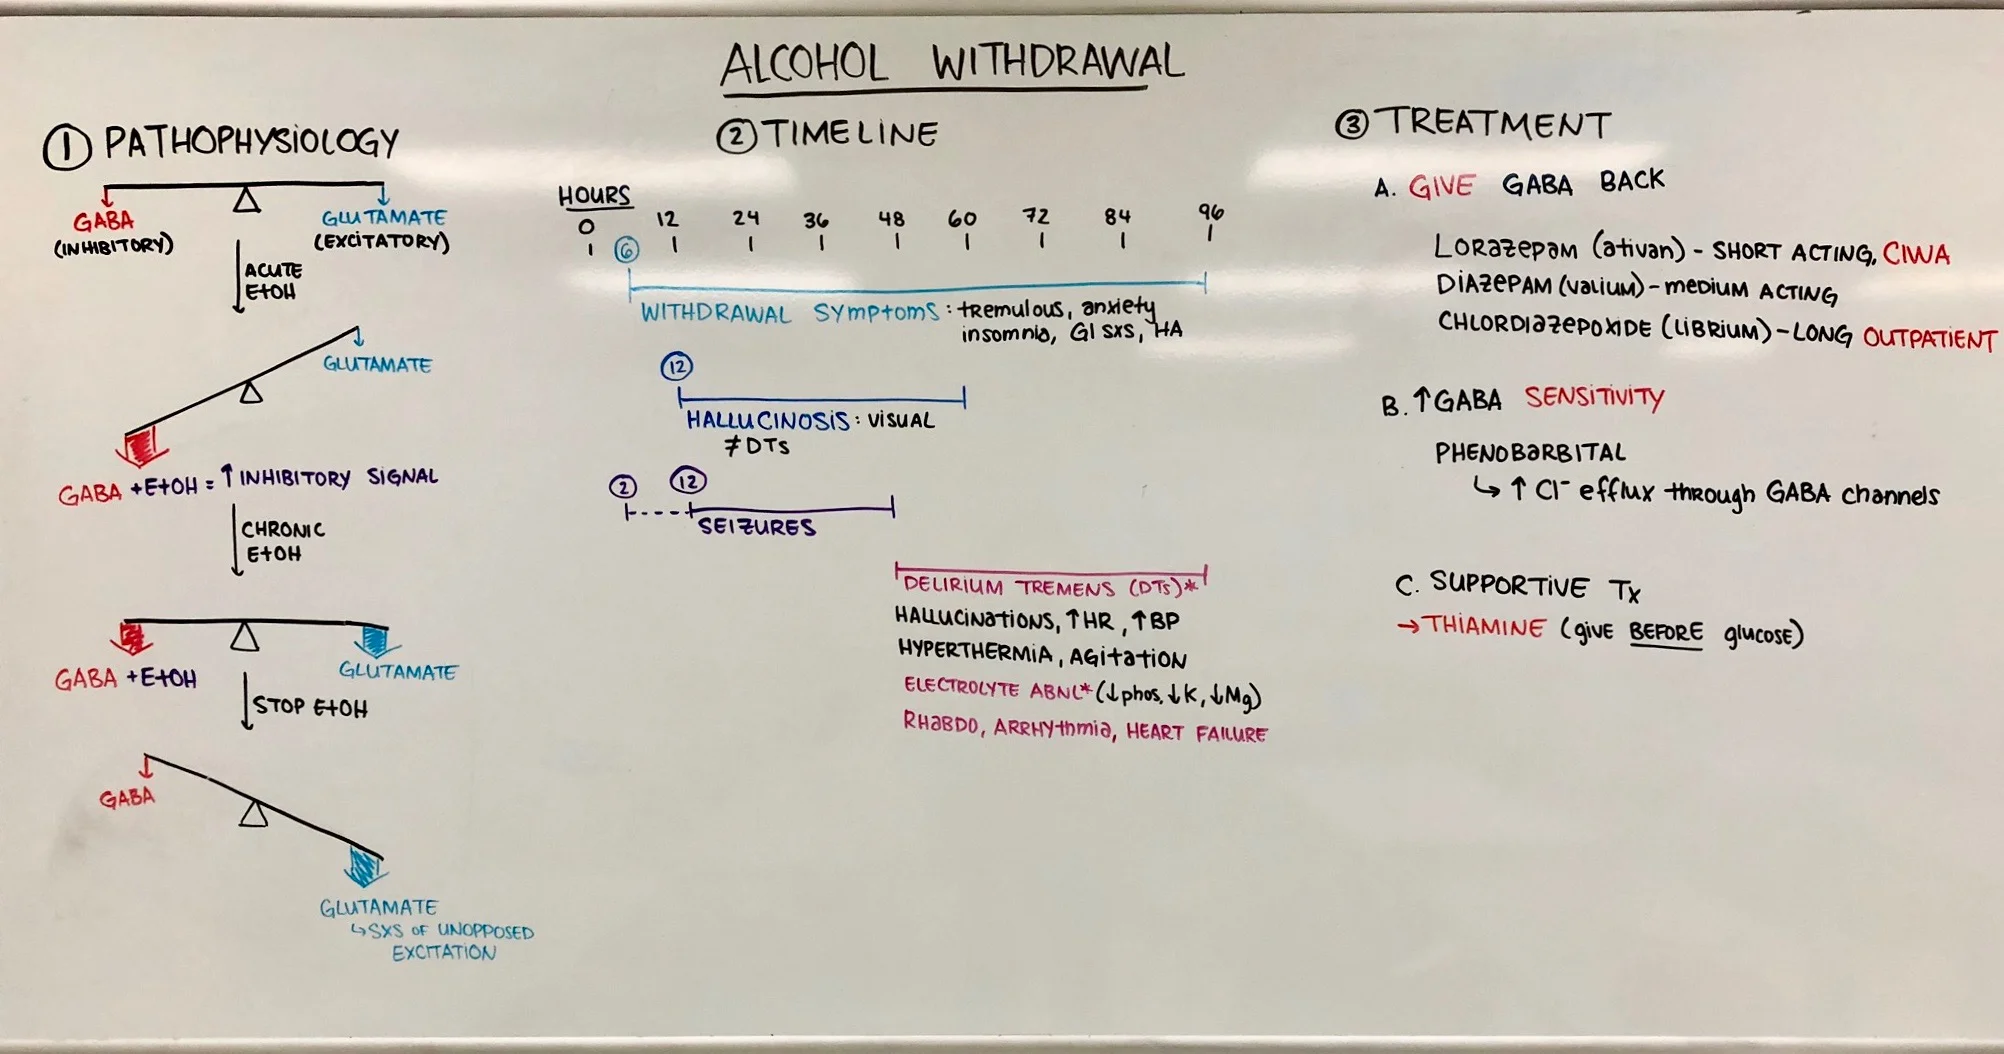 ALCOHOL WITHDRAWAL
① PATHOPHYSIOLOGY
GABA
(INHIBITORY)
GLUTAMATE
(EXCITATORY)
ACUTE
EtOH
GLUTAMATE
GABA + EtOH = ↑ INHIBITORY SIGNAL
CHRONIC
EtOH
GABA + EtOH
GLUTAMATE
STOP EtOH
GABA
GLUTAMATE
↳ SXS OF UNOPPOSED
EXCITATION
② TIMELINE
HOURS
0 12 24 36 48 60 72 84 96
⑥
WITHDRAWAL SYMPTOMS: tremulous, anxiety
insomnia, GI SXS, HA
⑫
HALLUCINOSIS: VISUAL
≠ DTS
② ⑫
SEIZURES
DELIRIUM TREMENS (DTS)*
HALLUCINATIONS, ↑HR, ↑BP
HYPERTHERMIA, AGITATION
ELECTROLYTE ABNL* (↓phos, ↓K, ↓Mg)
RHABDO, ARRHYthmia, HEART FAILURE
③ TREATMENT
A. GIVE GABA BACK
LORAZEPAM (ativan) - SHORT ACTING, CIWA
DIAZEPAM (valium) - MEDIUM ACTING
CHLORDIAZEPOXIDE (LIBRIUM) - LONG OUTPATIENT
B. ↑GABA SENSITIVITY
PHENOBARBITAL
↳ ↑ Cl⁻ efflux through GABA channels
C. SUPPORTIVE Tx
→ THIAMINE (give BEFORE glucose)